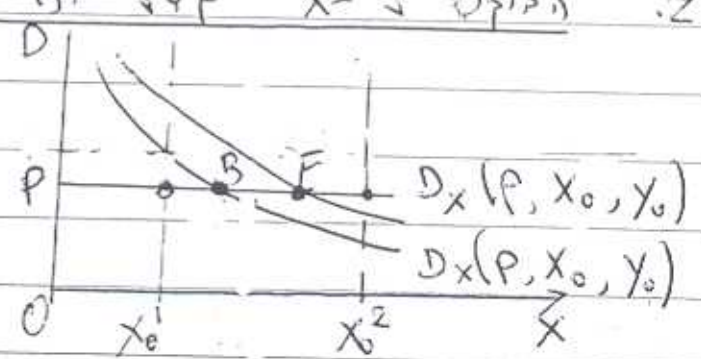 D
B F
P Dx(P, X₀, y₀)
Dx(P, X₀, y₀)
O Xe¹ X₀² X